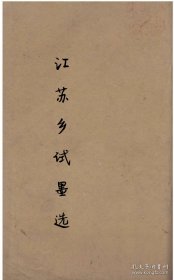 江苏乡试墨选